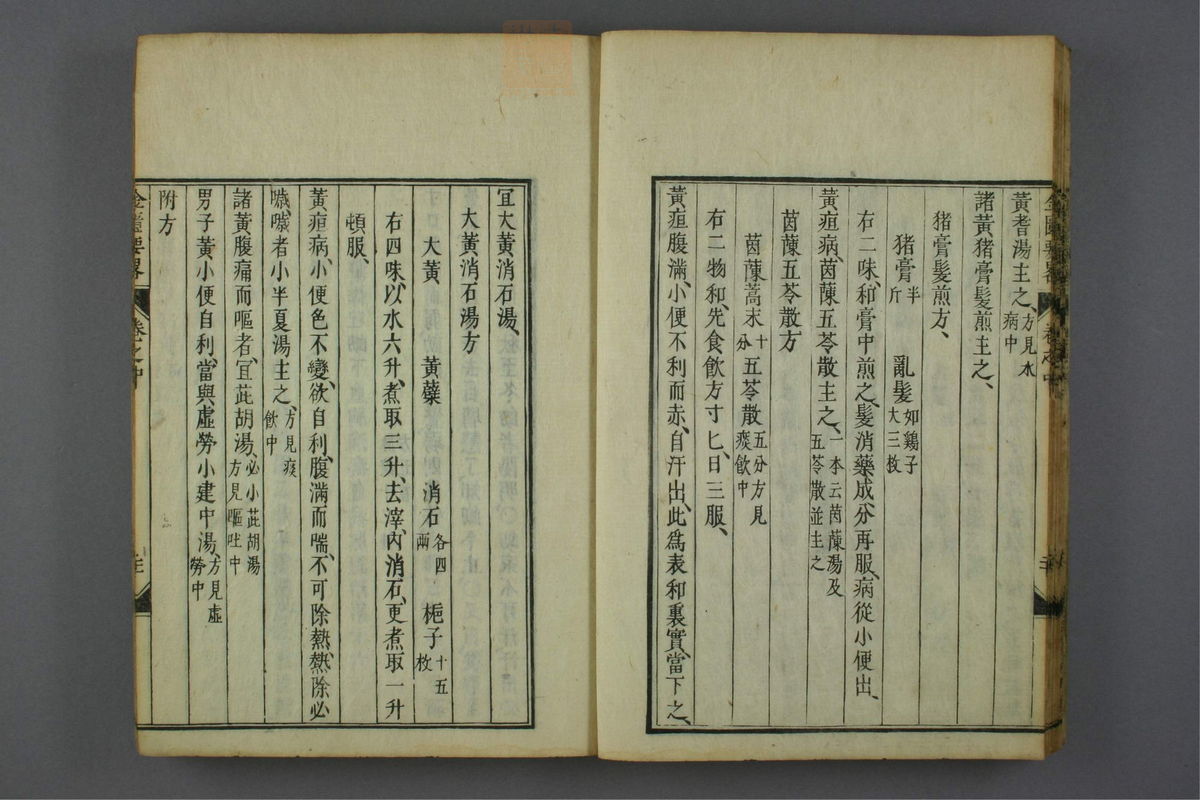 黃耆湯主之、方見水病中
諸黃猪膏髮煎主之、
猪膏髮煎方、
猪膏半斤　亂髮如鷄子大三枚
右二味、和膏中煎之、髮消藥成、分再服、病從小便出、
黃疸病、茵蔯五苓散主之、一本云茵蔯湯及五苓散並主之
茵蔯五苓散方
茵蔯蒿末十分　五苓散五分方見痰飲中
右二物和、先食飲方寸匕、日三服、
黃疸腹滿、小便不利而赤、自汗出、此爲表和裏實、當下之、
宜大黃消石湯、
大黃消石湯方
大黃　黃蘗　消石各四兩　梔子十五枚
右四味、以水六升、煮取三升、去滓、內消石、更煮取一升
頓服、
黃疸病、小便色不變、欲自利、腹滿而喘、不可除熱、熱除必
噦、噦者小半夏湯主之、方見痰飲中
諸黃腹痛而嘔者、宜茈胡湯、必小茈胡湯方見嘔吐中
男子黃小便自利、當與虛勞小建中湯、方見虛勞中
附方
金匱要畧　卷之中